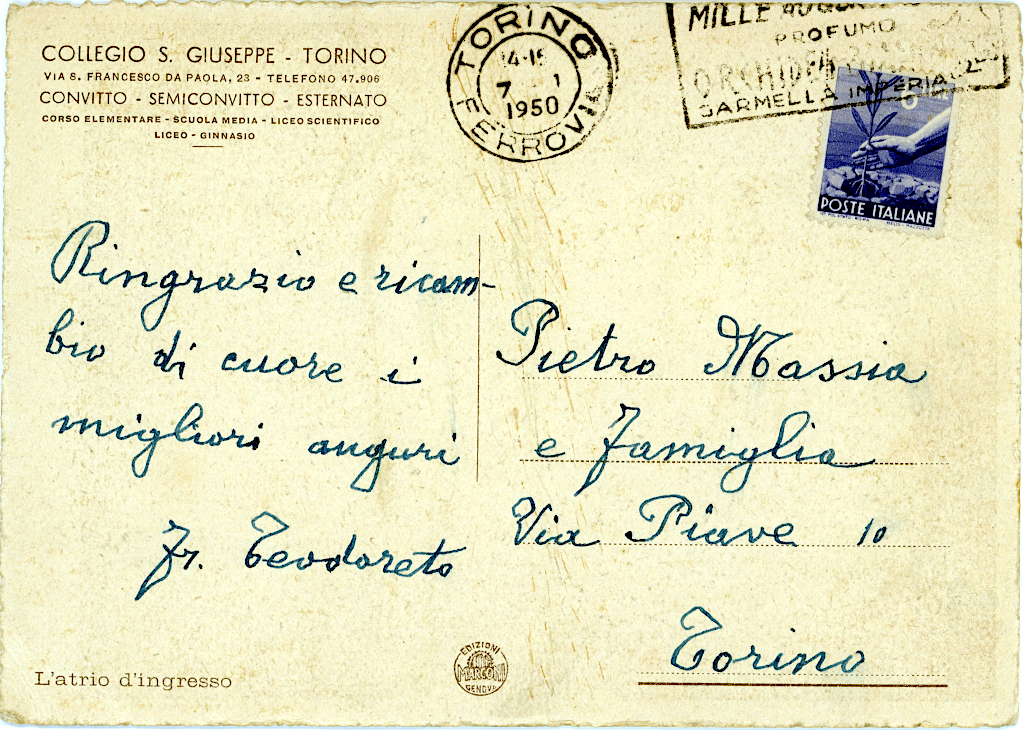 COLLEGIO S. GIUSEPPE - TORINO
VIA S. FRANCESCO DA PAOLA, 23 - TELEFONO 47.906
CONVITTO - SEMICONVITTO - ESTERNATO
CORSO ELEMENTARE - SCUOLA MEDIA - LICEO SCIENTIFICO
LICEO - GINNASIO
TORINO
7 1
1950
FERROVIE
MILLE
PROFUMO
ORCHIDEA
GARMELLA IMPERIALE
POSTE ITALIANE
Ringrazio e ricam-
bio di cuore i
migliori auguri
Fr. Teodoreto
Pietro Massia
e Famiglia
Via Piave 10
Torino
L'atrio d'ingresso
EDIZIONI
MARCONI
GENOVA